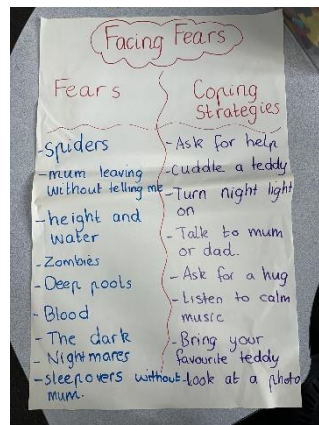 Facing Fears
Fears
- Spiders
- mum leaving
without telling me
- height and
water
- Zombies
- Deep pools
- Blood
- The dark
- Nightmares
- sleepovers without
mum.
Coping
Strategies
- Ask for help
- Cuddle a teddy
- Turn night light
on
- Talk to mum
or dad.
- Ask for a hug
- Listen to calm
music
- Bring your
favourite teddy
- look at a photo